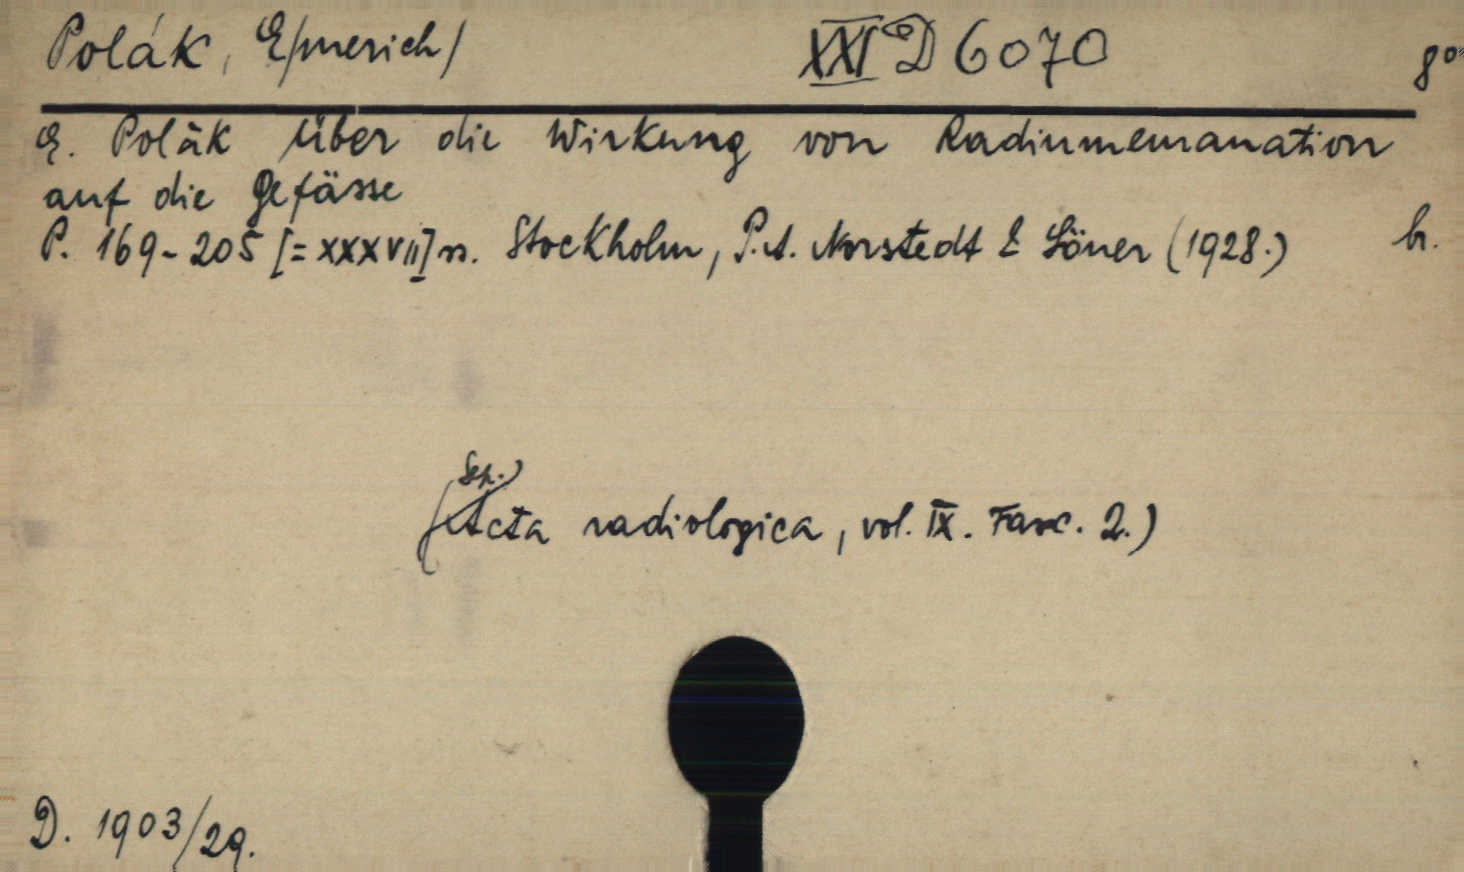 Polák, E/merich/ XXI D 6070 8°
E. Polák Über die Wirkung von Radiumemanation
auf die Gefässe
P. 169-205 [=XXXVII] n. Stockholm, P. A. Norstedt & Söner (1928.) h.
Sep.
(Acta radiologica, vol. IX. Fasc. 2.)
D. 1903/29.